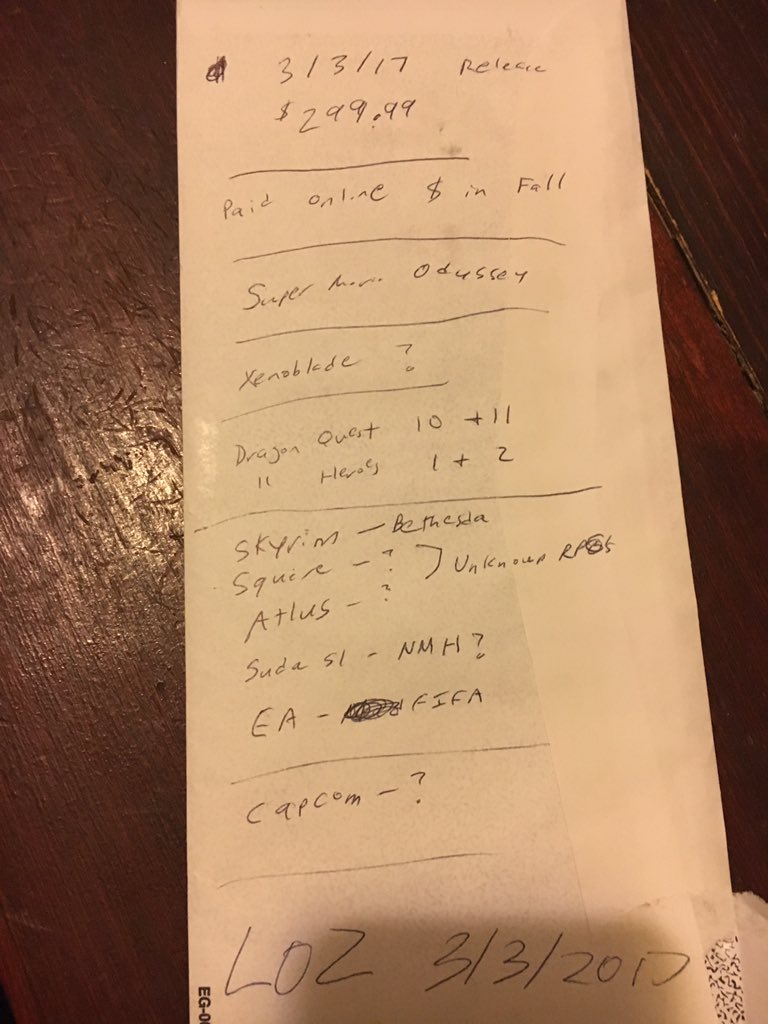 3/3/17 Release
$299.99
Paid online $ in Fall
Super Mario Odyssey
Xenoblade ?
Dragon Quest 10 + 11
" Heroes 1 + 2
Skyrim - Bethesda
Square - ? } Unknown RPGs
Atlus - ?
Suda 51 - NMH?
EA - FIFA
Capcom - ?
LOZ 3/3/2017